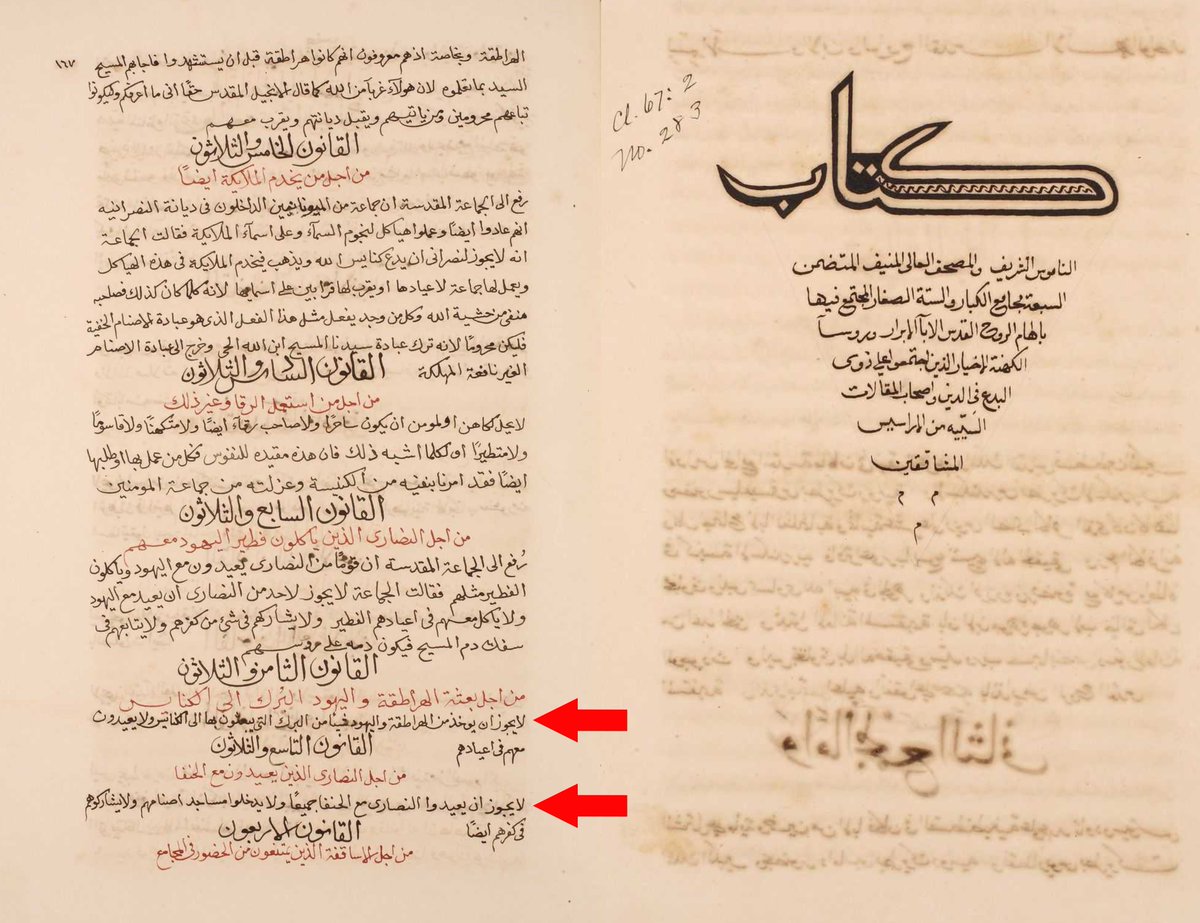 Cl. 67: 2
No. 283
كتاب
الناموس الشريف والمصحف العالى المنيف المتضمن
السبعة مجامع الكبار والستة الصغار المجتمع فيها
بالهام الروح القدس الابآ الابرار وروسآ
الكهنة الاخيار الذين اجتمعوا على ذوى
البدع فى الدين واصحاب المقالات
السّييه من الهراسيس
المنافقين
م م
م
١٦٧
الهراطقة وبخاصة اذهم معروفون انهم كانوا هراطقة قبل ان يستشهدوا فاجابهم المسيح
السيد بما نقلوه لان هولآء غربآ من الله كما قال الانجيل المقدس حقًا انى ما اعرفكم وليكونوا
تباعهم محرومين ومن ياتيهم ويقبل ديانتهم ويقرب معهم
القانون الخامس والثلاثون
من اجل من يخدم الملايكة ايضًا
رفع الى الجماعة المقدسة ان جماعة من اليونانيين الداخلون فى ديانة النصرانيه
انهم عادوا ايضًا وعملوا هياكل لنجوم السمآء وعلى اسمآء الملايكة فقالت الجماعة
انه لايجوز لنصرانى ان يدع كنايس الله ويذهب فيخدم الملايكة فى هذه الهياكل
ويعمل لها جماعة لاعيادها او يقرب لها قرابين على اسمايها لانه كلما كان كذلك فصاحبه
منفى من خشية الله وكل من وجد يفعل مثل هذا الفعل الذى هو عبادة الاصنام الخفية
فليكن محرومًا لانه ترك عبادة سيدنا المسيح ابن الله الحى وخرج الى عبادة الاصنام
الغير نافعة المهلكة
القانون السادس والثلاثون
من اجل من استعمل الرقا وغير ذلك
لايحل لكاهن او لمومن ان يكون ساحرًا ولاصاحب رقآء ايضًا ولا متكهنًا ولا قاسومًا
ولا متطيرًا او لكلما اشبه ذلك فان هذه مقيده للنفوس فكل من عمل بها او طلبها
ايضًا فقد امرنا بنفيه من الكنيسة وعزلته من جماعة المومنين
القانون السابع والثلاثون
من اجل النصارى الذين ياكلون فطير اليهود معهم
رُفع الى الجماعة المقدسة ان قومًا من النصارى يعيدون مع اليهود وياكلون
الفطير مثلهم فقالت الجماعة لايجوز لاحد من النصارى ان يعيد مع اليهود
ولا ياكل معهم فى اعيادهم الفطير ولا يشاركهم فى شئ من كفرهم ولا يتابعهم فى
سفك دم المسيح فيكون دمه على روسهم
القانون الثامن والثلاثون
من اجل بعثة الهراطقة واليهود البرك الى الكنايس
لايجوز ان يوخذ من الهراطقة واليهود شيًا من البرك التى يبعثون بها الى الكنايس ولا يعيدون
معهم فى اعيادهم
القانون التاسع والثلاثون
من اجل النصارى الذين يعيدون مع الحنفا
لايجوز ان يعيدوا النصارى مع الحنفا جميعًا ولا يدخلوا مساجد اصنامهم ولايشاركوهم
فى كفرهم ايضًا
القانون الاربعون
من اجل الاساقفة الذين يمتنعون من الحضور فى المجامع